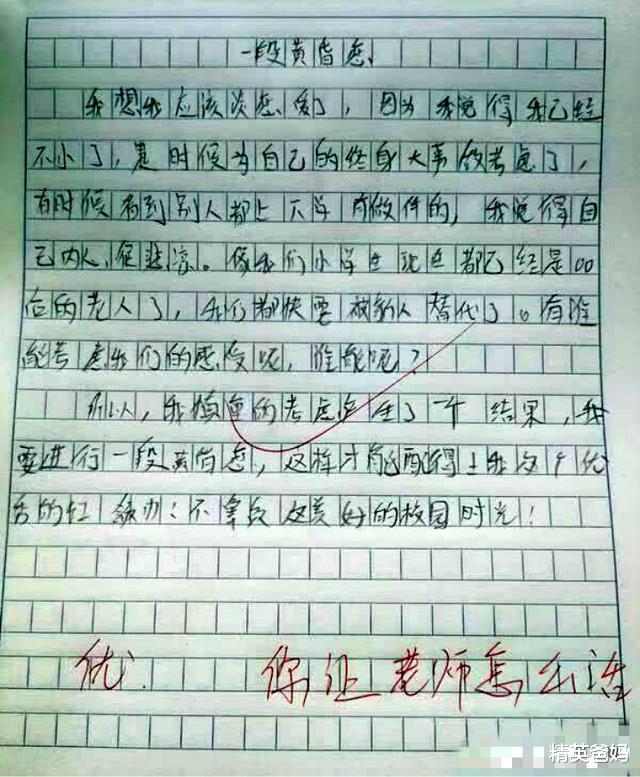 一段黄昏恋
我想我应该谈恋爱了，因为我觉得我已经
不小了，是时候为自己的终身大事做考虑了，
有时候看到别人都上下学有做伴的，我觉得自
己内人很悲凉。像我们小学生现在都已经是00
后的老人了，我们都快要被新人替代了。有谁
能考虑我们的感受呢，谁能呢？
所以人，我慎重的考虑产生了一个结果，我
要进行一段黄昏恋，这样才能配得上我这个优
秀的红领巾！不辜负这美好的校园时光！
优 你让老师怎么活
精英爸妈